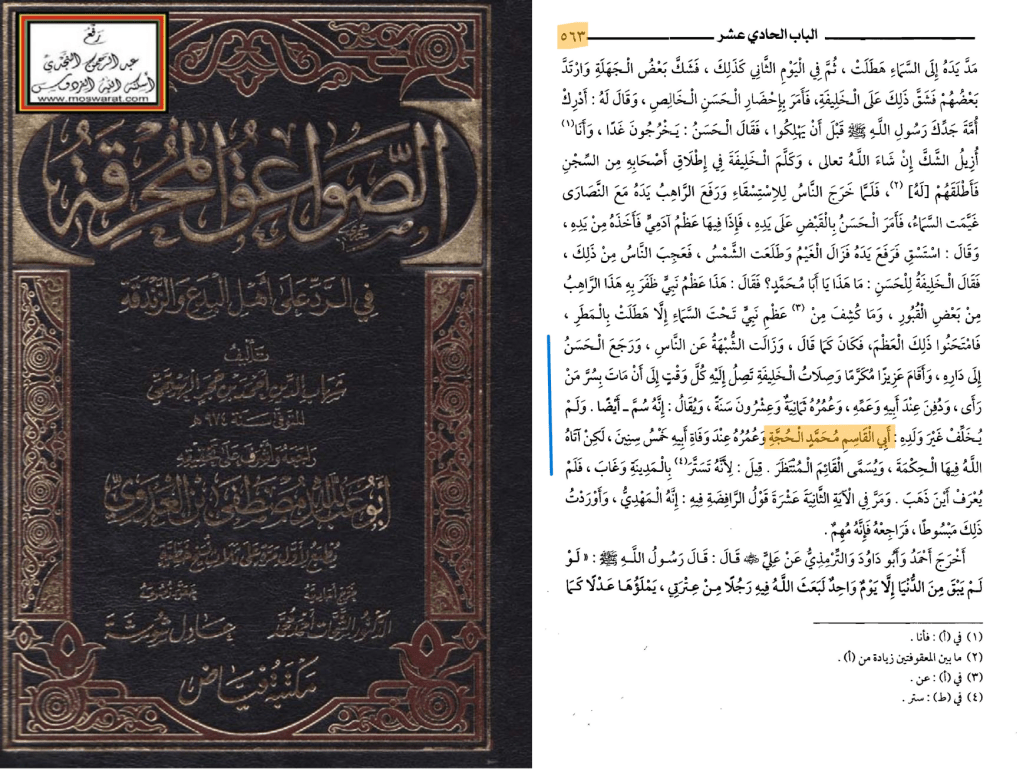 رفع
عبد الرحمن النجدي
أسكنه الله الفردوس
www.moswarat.com
الصَّوَاعِقُ المُحْرِقَةُ
في الرد على أهل البدع والزندقة
تأليف
شهاب الدين أحمد بن حجر الهيتمي
المتوفى سنة ٩٧٤هـ
راجعه وأشرف على تحقيقه
أبو عبد الله مصطفى بن العدوي
الدكتور الشحات أحمد محمد
عادل شوشة
مكتبة فياض
الباب الحادي عشر ٥٦٣
مَدَّ يَدَهُ إِلَى السَّمَاءِ هَطَلَتْ ، ثُمَّ فِي الْيَوْمِ الثَّانِي كَذَلِكَ ، فَشَكَّ بَعْضُ الْجَهَلَةِ وَارْتَدَّ
بَعْضُهُمْ فَشَقَّ ذَلِكَ عَلَى الْخَلِيفَةِ، فَأَمَرَ بِإِحْضَارِ الْحَسَنِ الْخَالِصِ ، وَقَالَ لَهُ : أَدْرِكْ
أُمَّةَ جَدِّكَ رَسُولِ اللَّهِ ﷺ قَبْلَ أَنْ يَهْلِكُوا ، فَقَالَ الْحَسَنُ : يَخْرُجُونَ غَدًا ، وَأَنَا(١)
أُزِيلُ الشَّكَّ إِنْ شَاءَ اللَّهُ تعالى ، وَكَلَّمَ الْخَلِيفَةَ فِي إِطْلَاقِ أَصْحَابِهِ مِن السِّجْنِ
فَأَطْلَقَهُمْ [لَهُ] (٢)، فَلَمَّا خَرَجَ النَّاسُ لِلِاسْتِسْقَاءِ وَرَفَعَ الرَّاهِبُ يَدَهُ مَعَ النَّصَارَى
غَيَّمَتِ السَّمَاءُ، فَأَمَرَ الْحَسَنُ بِالْقَبْضِ عَلَى يَدِهِ ، فَإِذَا فِيهَا عَظْمُ آدَمِيٍّ فَأَخَذَهُ مِنْ يَدِهِ ،
وَقَالَ : اسْتَسْقِ فَرَفَعَ يَدَهُ فَزَالَ الْغَيْمُ وَطَلَعَت الشَّمْسُ ، فَعَجِبَ النَّاسُ مِنْ ذَلِكَ ،
فَقَالَ الْخَلِيفَةُ لِلْحَسَنِ : مَا هَذَا يَا أَبَا مُحَمَّدٍ؟ فَقَالَ : هَذَا عَظْمُ نَبِيٍّ ظَفَرَ بِهِ هَذَا الرَّاهِبُ
مِنْ بَعْضِ الْقُبُورِ ، وَمَا كُشِفَ مِنْ (٣) عَظْمِ نَبِيٍّ تَحْتَ السَّمَاءِ إِلَّا هَطَلَتْ بِالْمَطَرِ ،
فَامْتَحَنُوا ذَلِكَ الْعَظْمَ، فَكَانَ كَمَا قَالَ ، وَزَالَت الشُّبْهَةُ عَنِ النَّاسِ ، وَرَجَعَ الْحَسَنُ
إِلَى دَارِهِ ، وَأَقَامَ عَزِيزًا مُكَرَّمًا وَصِلَاتُ الْخَلِيفَةِ تَصِلُ إِلَيْهِ كُلَّ وَقْتٍ إِلَى أَنْ مَاتَ بِسُرَّ مَنْ
رَأَى ، وَدُفِنَ عِنْدَ أَبِيهِ وَعَمِّهِ ، وَعُمُرُهُ ثَمَانِيَةٌ وَعِشْرُونَ سَنَةً ، وَيُقَالُ : إِنَّهُ سُمَّ ـ أَيْضًا . وَلَمْ
يُخَلِّفْ غَيْرَ وَلَدِهِ : أَبِي الْقَاسِمِ مُحَمَّدٍ الْحُجَّةِ وَعُمُرُهُ عِنْدَ وَفَاةِ أَبِيهِ خَمْسُ سِنِينَ ، لَكِنْ آتَاهُ
اللَّهُ فِيهَا الْحِكْمَةَ ، وَيُسَمَّى الْقَائِمَ الْمُنْتَظَرَ . قِيلَ : لِأَنَّهُ تَسَتَّرَ(٤) بِالْمَدِينَةِ وَغَابَ ، فَلَمْ
يُعْرَفْ أَيْنَ ذَهَبَ . وَمَرَّ فِي الْآيَةِ الثَّانِيَةَ عَشْرَةَ قَوْلُ الرَّافِضَةِ فِيهِ : إِنَّهُ الْمَهْدِيُّ ، وَأَوْرَدْتُ
ذَلِكَ مَبْسُوطًا ، فَرَاجِعْهُ فَإِنَّهُ مُهِمٌّ .
أَخْرَجَ أَحْمَدُ وَأَبُو دَاوُدَ وَالتِّرْمِذِيُّ عَنْ عَلِيٍّ قَالَ : قَالَ رَسُولُ اللَّهِ ﷺ : « لَوْ
لَمْ يَبْقَ مِنَ الدُّنْيَا إِلَّا يَوْمٌ وَاحِدٌ لَبَعَثَ اللَّهُ فِيهِ رَجُلًا مِنْ عِتْرَتِي ، يَمْلَؤُهَا عَدْلًا كَمَا
(١) في (أ) : فأنا .
(٢) ما بين المعقوفتين زيادة من (أ) .
(٣) في (أ) : عن .
(٤) في (ط) : ستر .